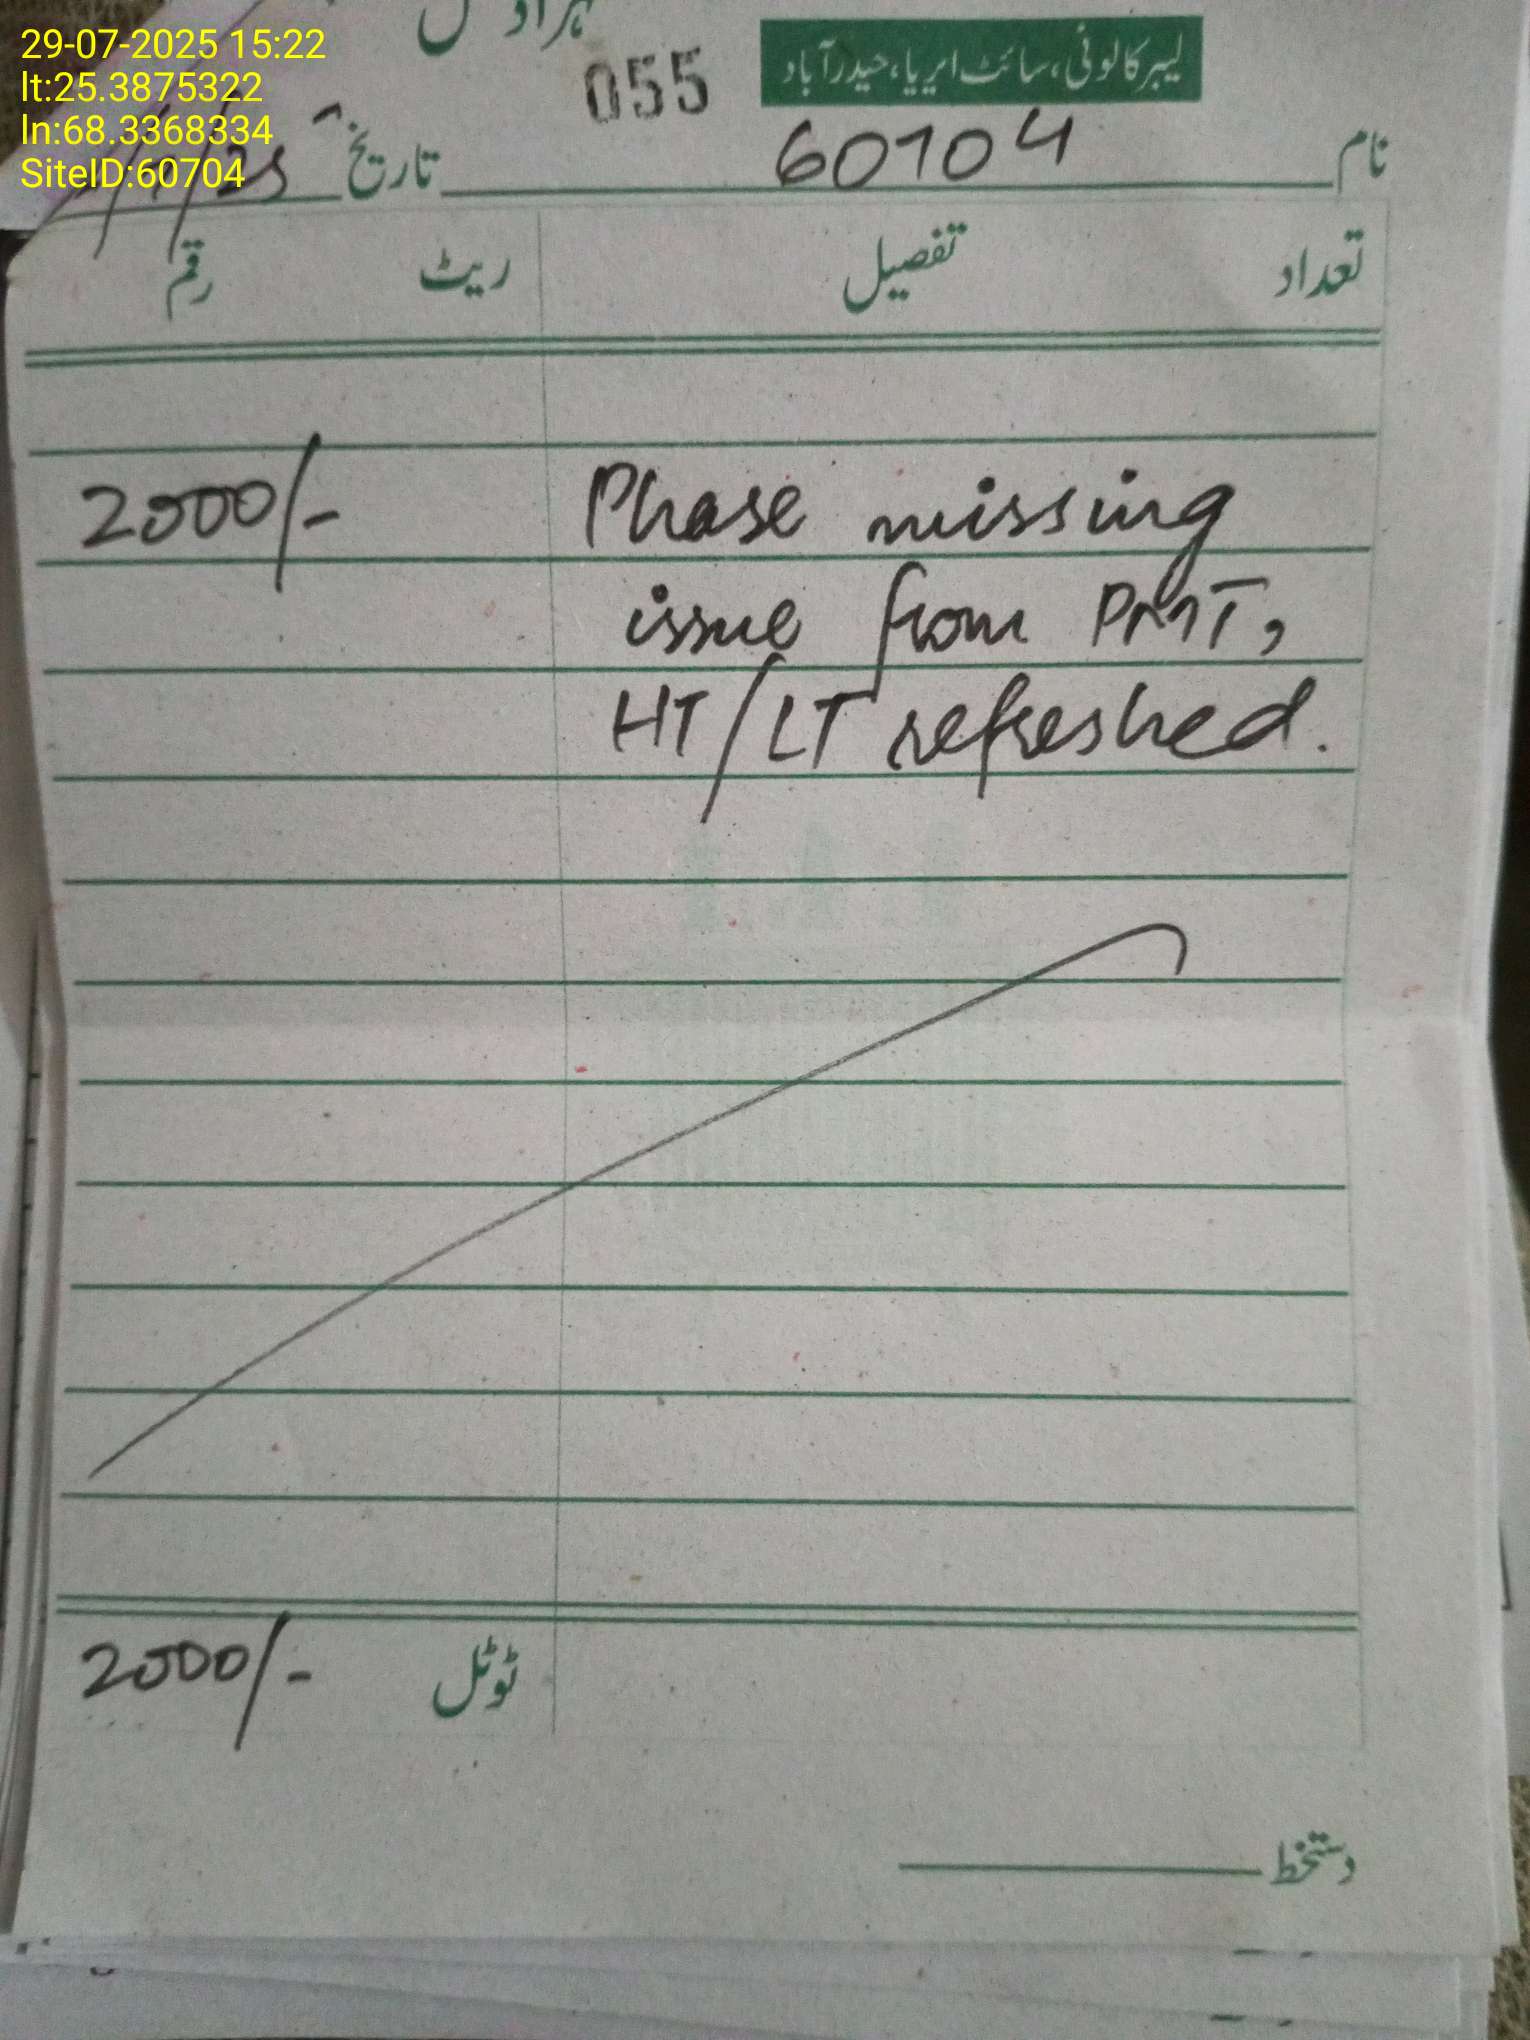 29-07-2025 15:22
lt:25.3875322
ln:68.3368334
SiteID:60704
055
لیبر کالونی، سائٹ ایریا، حیدرآباد
نام 60704 تاریخ /25
تعداد تفصیل ریٹ رقم
Phase missing 2000/-
issue from PMT,
HT/LT refreshed.
ٹوٹل 2000/-
دستخط